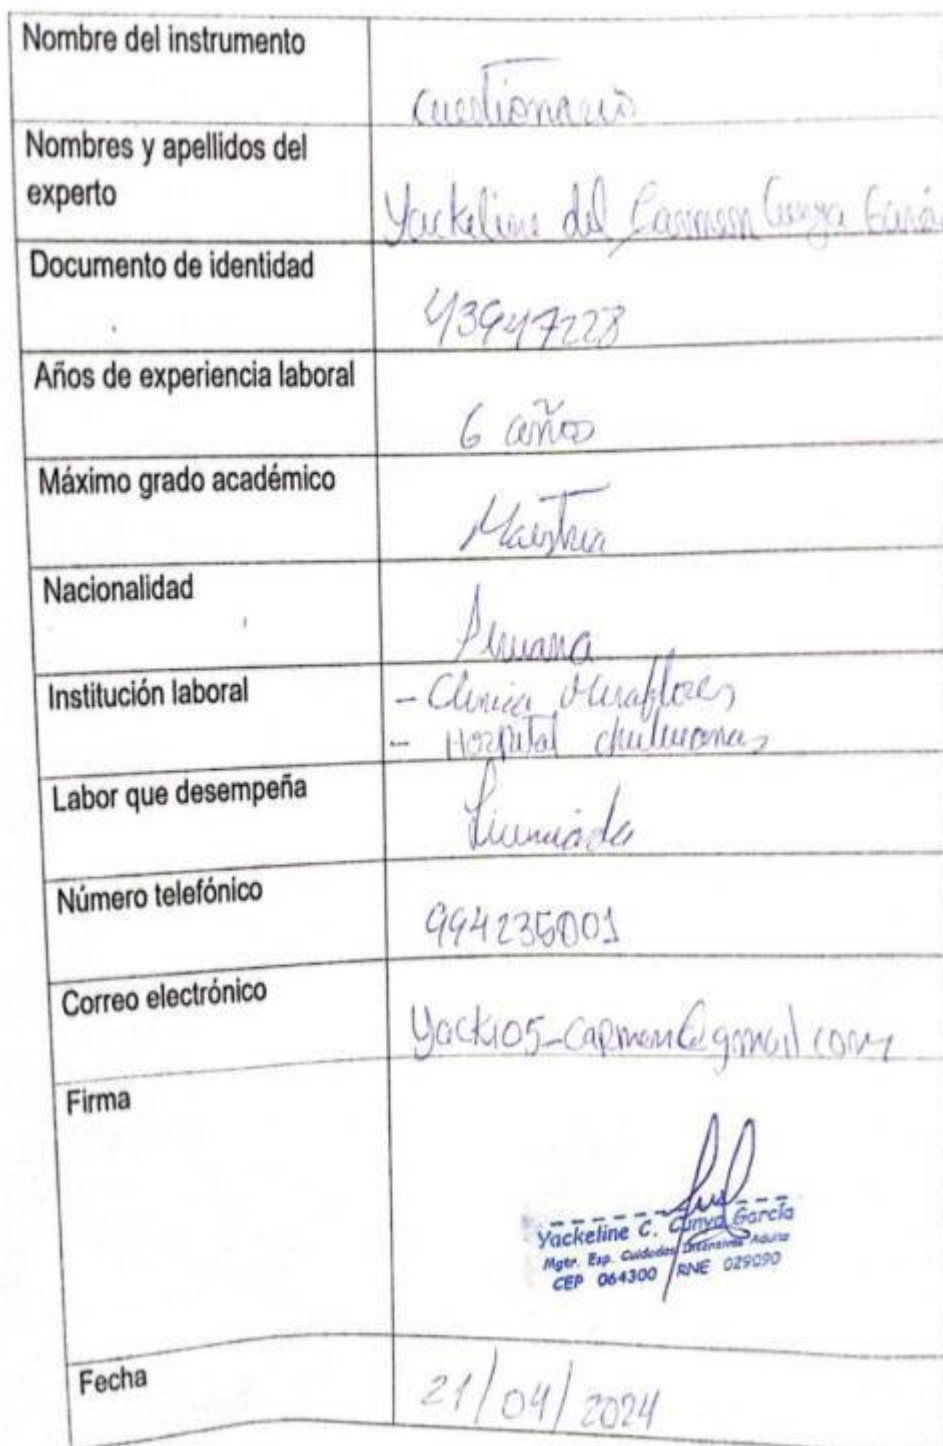 Nombre del instrumento
cuestionario
Nombres y apellidos del
experto
Yackeline del Carmen Cunya García
Documento de identidad
43947223
Años de experiencia laboral
6 años
Máximo grado académico
Maestria
Nacionalidad
Peruana
Institución laboral
- Clinica Miraflores
- Hospital chulucanas
Labor que desempeña
Licenciada
Número telefónico
994235001
Correo electrónico
Yacki05_carmen@gmail.com
Firma
Yackeline C. Cunya García
Mgtr. Esp. Cuidados Intensivos Adulto
CEP 064300 RNE 029090
Fecha
21/04/2024